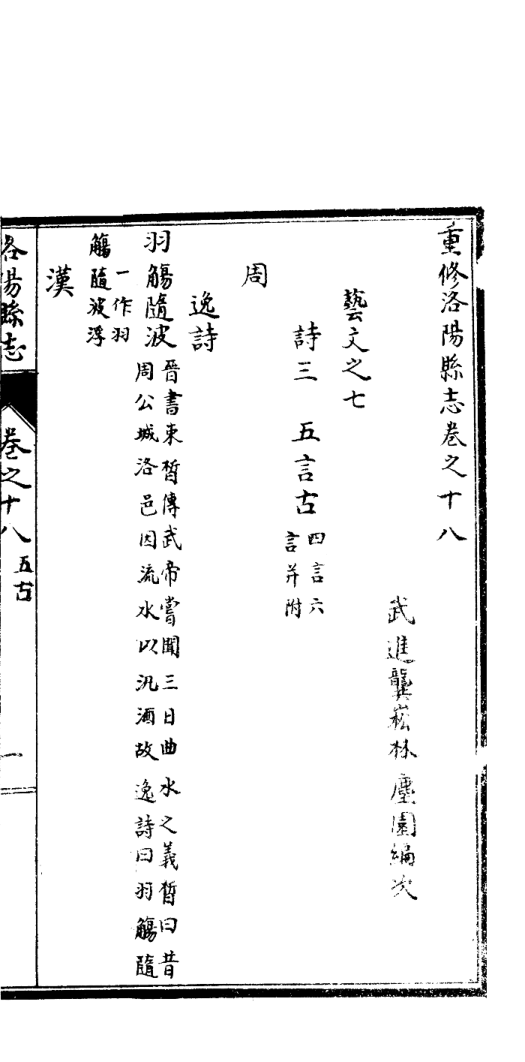 重修洛陽縣志卷之十八
武進龔崧林麈園編次
藝文之七
詩三 五言古 四言六言并附
周
逸詩
羽觴隨波 晉書束晳傳武帝嘗聞三日曲水之義晳曰昔周公城洛邑因流水以汎酒故逸詩曰羽觴隨
一作羽觴隨波浮
漢
洛陽縣志 卷之十八 五古 一